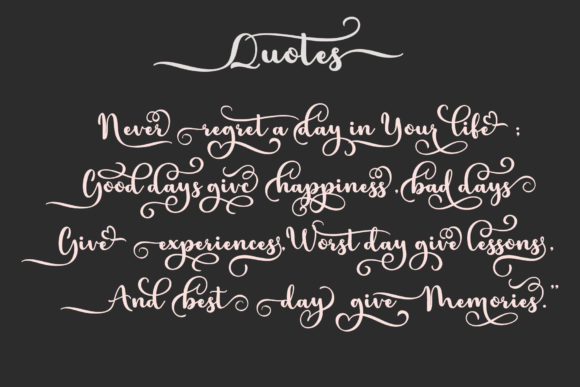 Quotes
Never regret a day in Your life ;
Good days give happiness , bad days
Give experiencess, Worst day give lessons ,
And best day give Memories."